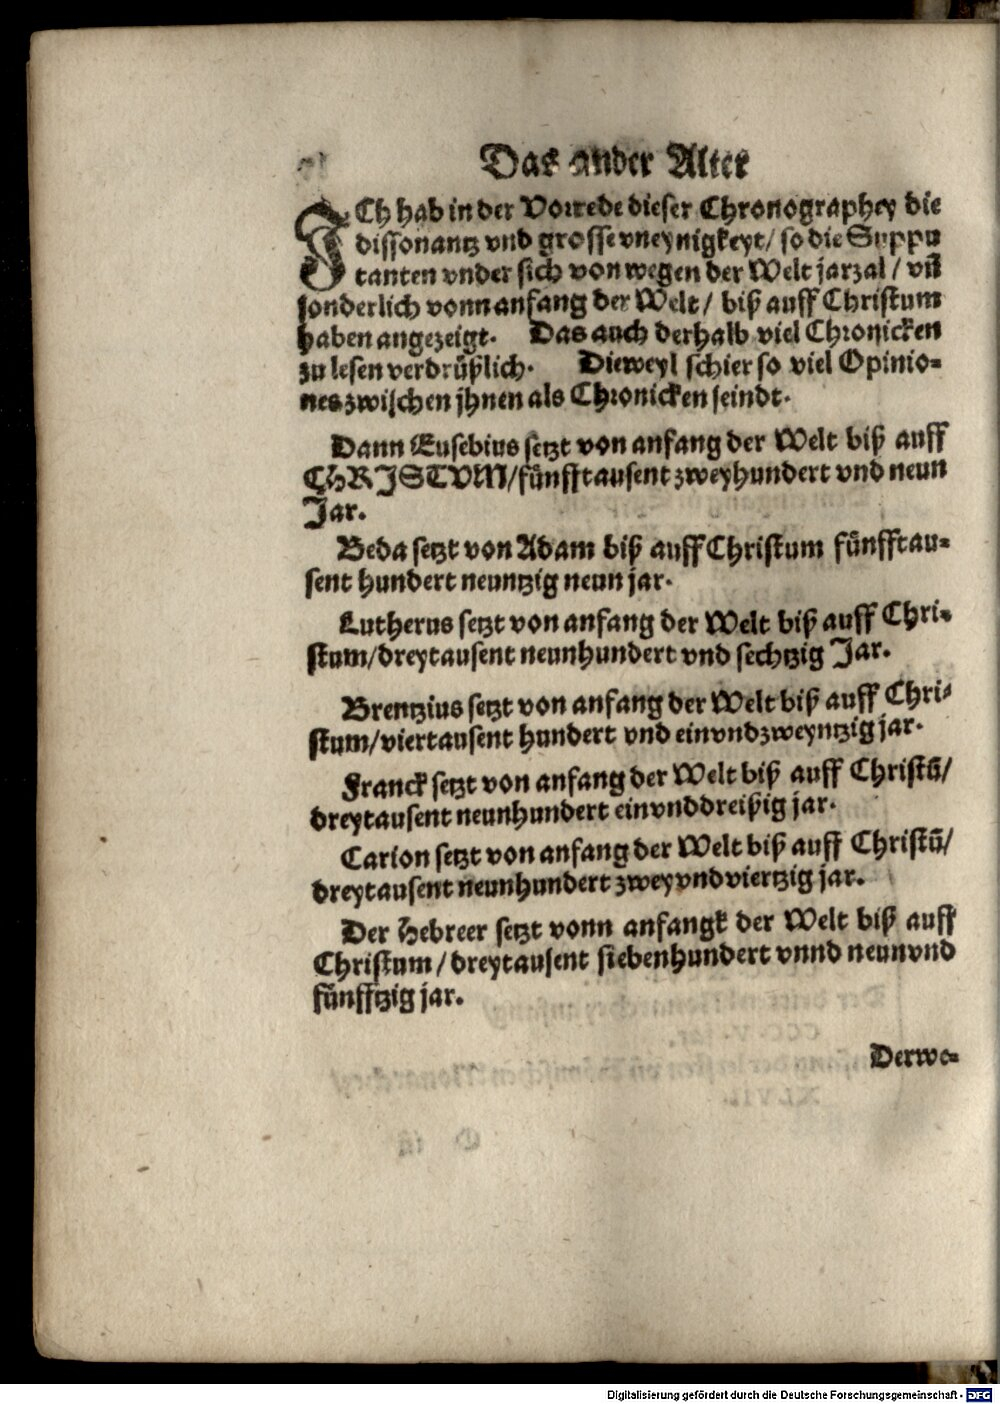 Das ander Alter
ICh hab in der Vorrede dieser Chronographey die
dissonantz vnd grosse vneynigkeyt / so die Suppu
tanten vnder sich von wegen der Welt jarzal / vñ
sonderlich vonn anfang der Welt / biß auff Christum
haben angezeigt. Das auch derhalb viel Chronicken
zu lesen verdrüßlich. Dieweyl schier so viel Opinio-
nes zwischen jhnen als Chronicken seindt.
Dann Eusebius setzt von anfang der Welt biß auff
CHRISTVM / fünfftausent zweyhundert vnd neun
Jar.
Beda setzt von Adam biß auff Christum fünfftau-
sent hundert neuntzig neun jar.
Lutherus setzt von anfang der Welt biß auff Chri-
stum / dreytausent neunhundert vnd sechtzig Jar.
Brentzius setzt von anfang der Welt biß auff Chri-
stum / viertausent hundert vnd einvndzweyntzig jar.
Franck setzt von anfang der Welt biß auff Christū /
dreytausent neunhundert einvnddreißig jar.
Carion setzt von anfang der Welt biß auff Christū /
dreytausent neunhundert zweyvndviertzig jar.
Der Hebreer setzt vonn anfangk der Welt biß auff
Christum / dreytausent siebenhundert vnnd neunvnd
fünfftzig jar.
Derwe-
Digitalisierung gefördert durch die Deutsche Forschungsgemeinschaft - DFG